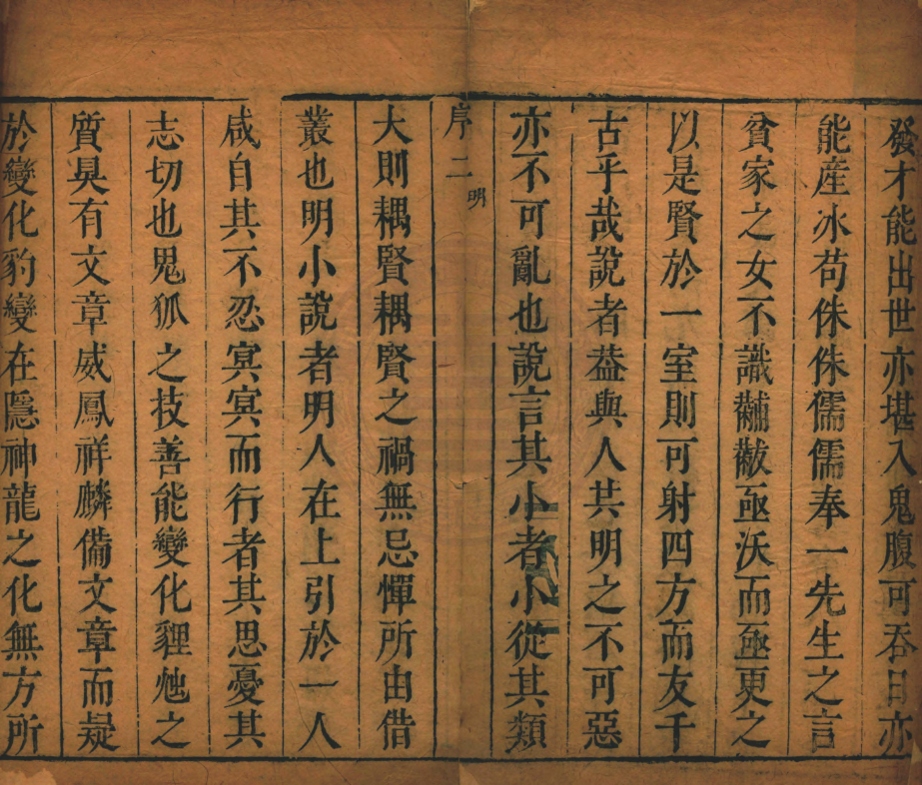 發才能出世亦堪入鬼腹可吞日亦
能產冰苟侏侏儒儒奉一先生之言
貧家之女不識黼黻亟沃而亟更之
以是賢於一室則可射四方而友千
古乎哉說者葢與人共明之不可惡
亦不可亂也說言其小者小從其類
序二 明
大則耦賢耦賢之禍無忌憚所由借
叢也明小說者明人在上引於一人
咸自其不忍冥冥而行者其思憂其
志切也鬼狐之技善能變化貍虺之
質具有文章威鳳祥麟備文章而疑
於變化豹變在隱神龍之化無方所